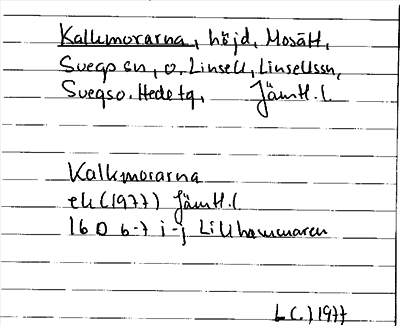 Kalkmorarna, höjd, Mosätt,
Svegs sn, o. Linsell, Linsellssn,
Svegs o. Hede tg, Jämtl. l.
Kalkmorarna
ek (1977) Jämtl. l.
16 D 6-7 i-j Lillhammaren
L(.) 1977